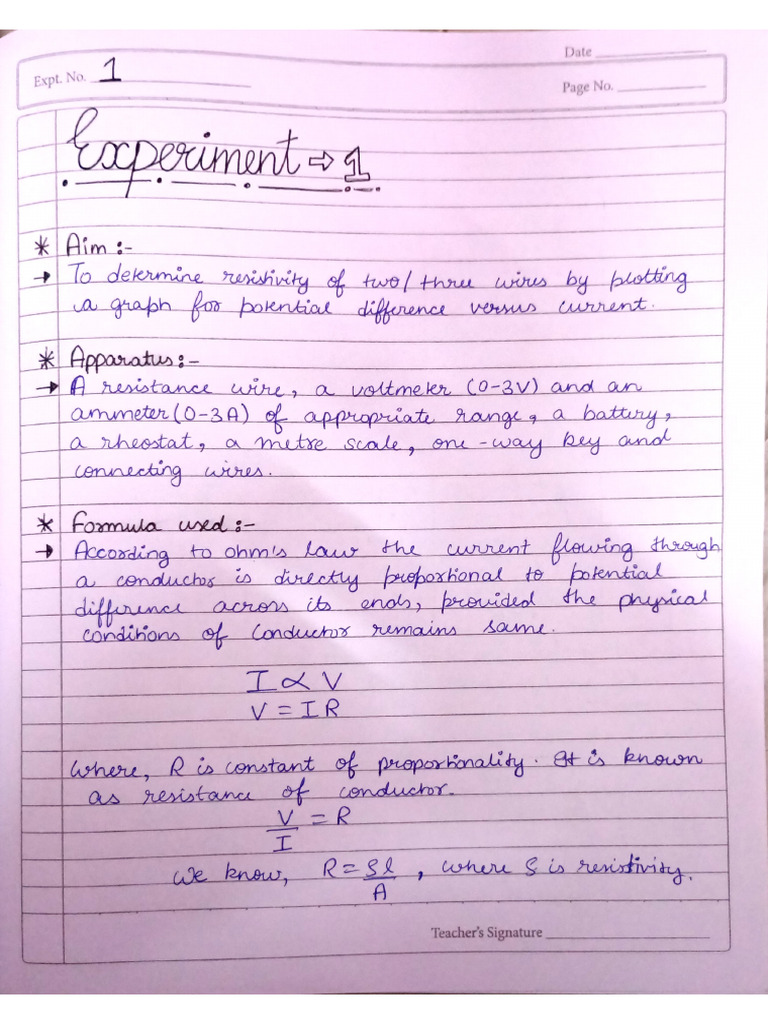 Date
Expt. No. 1
Page No.
Experiment ⇒ 1
* Aim :-
→ To determine resistivity of two/three wires by plotting
a graph for potential difference versus current.
* Apparatus :-
→ A resistance wire, a voltmeter (0-3V) and an
ammeter (0-3A) of appropriate range, a battery,
a rheostat, a metre scale, one-way key and
connecting wires.
* Formula used :-
→ According to ohm's law the current flowing through
a conductor is directly proportional to potential
difference across its ends, provided the physical
conditions of conductor remains same.
I ∝ V
V = IR
Where, R is constant of proportionality. It is known
as resistance of conductor.
V/I = R
We know, R = ρl/A, where ρ is resistivity.
Teacher's Signature